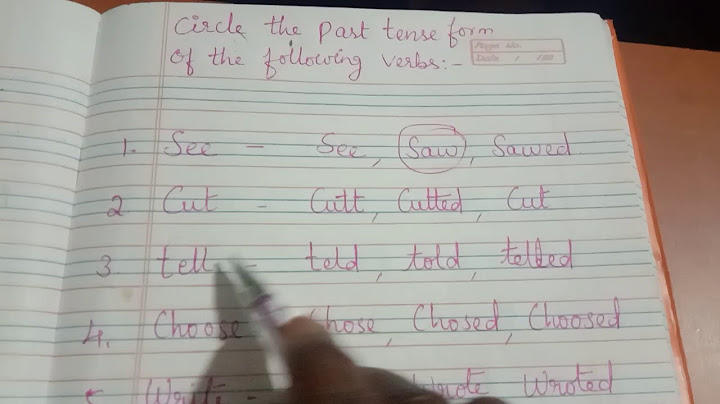 Circle the past tense form
Page No.
Date / /20
of the following verbs:-
1. See - See, Saw, Sawed
2 Cut - Cutt, Cutted, Cut
3 tell - teld, told, telled
4. Choose Chose, Chosed, Choosed
Write - Wrote Wroted